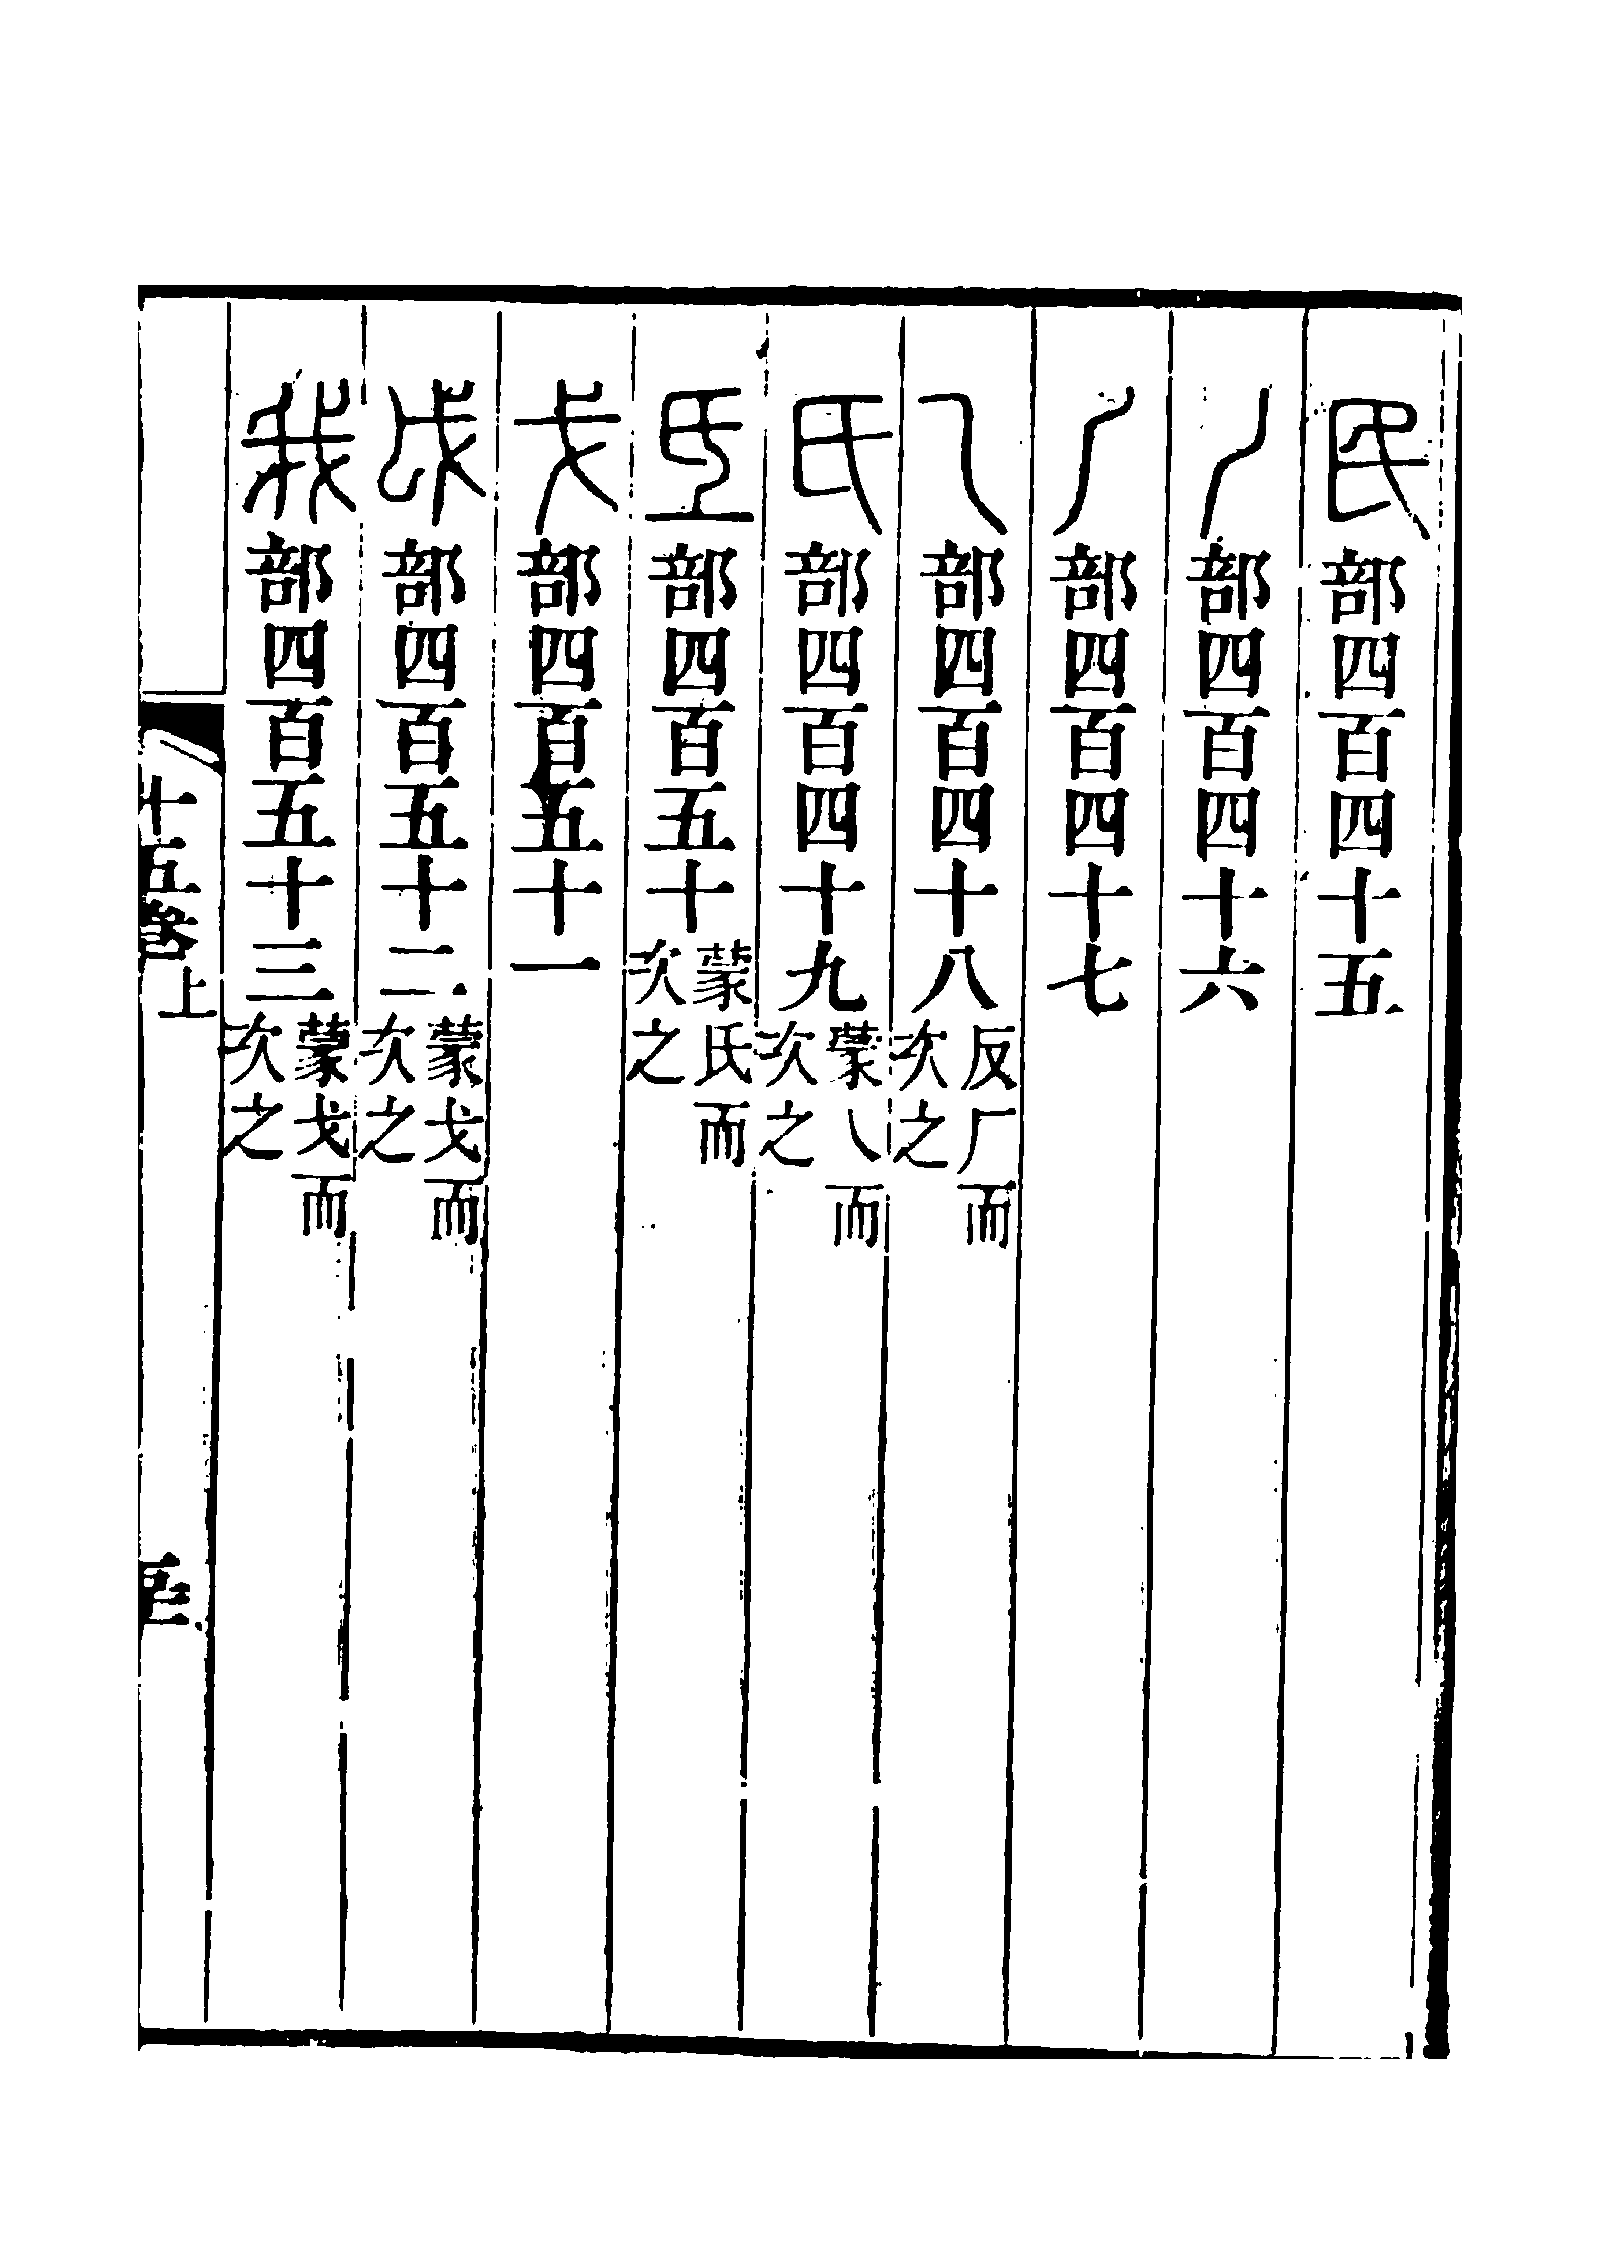 民部四百四十五
丿部四百四十六
𠂆部四百四十七
乁部四百四十八反厂而次之
氏部四百四十九蒙乁而次之
氐部四百五十蒙氏而次之
戈部四百五十一
戉部四百五十二蒙戈而次之
我部四百五十三蒙戈而次之
十五卷上